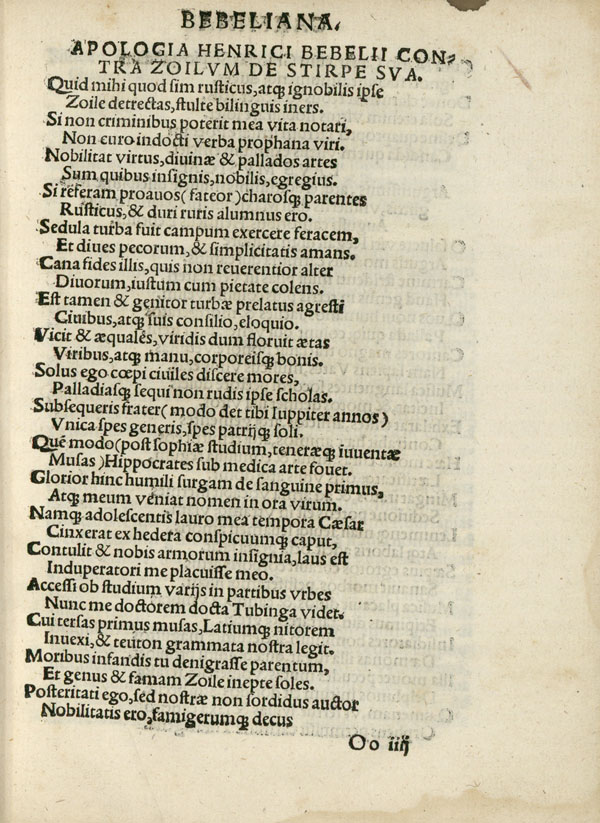 BEBELIANA.
APOLOGIA HENRICI BEBELII CON-
TRA ZOILVM DE STIRPE SVA.
Quid mihi quod sim rusticus, atq; ignobilis ipse
Zoile detrectas, stulte bilinguis iners.
Si non criminibus poterit mea vita notari,
Non curo indocti verba prophana viri.
Nobilitat virtus, diuinæ & pallados artes
Sum quibus insignis, nobilis, egregius.
Si referam proauos (fateor) charosq; parentes
Rusticus, & duri ruris alumnus ero.
Sedula turba fuit campum exercere feracem,
Et diues pecorum, & simplicitatis amans.
Cana fides illis, quis non reuerentior alter
Diuorum, iustum cum pietate colens.
Est tamen & genitor turbæ prelatus agresti
Ciuibus, atq; suis consilio, eloquio.
Vicit & æquales, viridis dum floruit ætas
Viribus, atq; manu, corporeisq; bonis.
Solus ego cœpi ciuiles discere mores,
Palladiasq; sequi non rudis ipse scholas.
Subsequeris frater (modo det tibi Iuppiter annos)
Vnica spes generis, spes patrijq; soli.
Quē modo (post sophiæ studium, teneræq; iuuentæ
Musas) Hippocrates sub medica arte fouet.
Glorior hinc humili surgam de sanguine primus,
Atq; meum veniat nomen in ora virum.
Namq; adolescentis lauro mea tempora Cæsar
Cinxerat ex hedera conspicuumq; caput,
Contulit & nobis armorum insignia, laus est
Induperatori me placuisse meo.
Accessi ob studium varijs in partibus vrbes
Nunc me doctorem docta Tubinga videt.
Cui tersas primus musas, Latiumq; nitorem
Inuexi, & teuton grammata nostra legit.
Moribus infandis tu denigrasse parentum,
Et genus & famam Zoile inepte soles.
Posteritati ego, sed nostræ non sordidus auctor
Nobilitatis ero, famigerumq; decus
Oo iiij